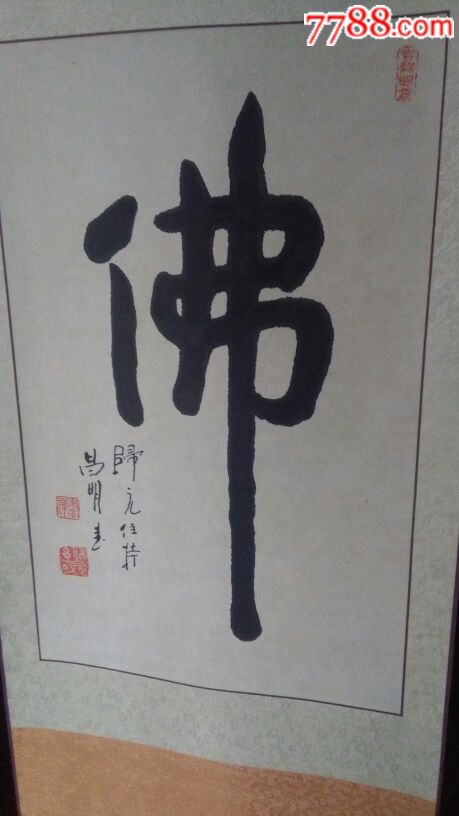 7788.com
佛
歸元住持
昌明書